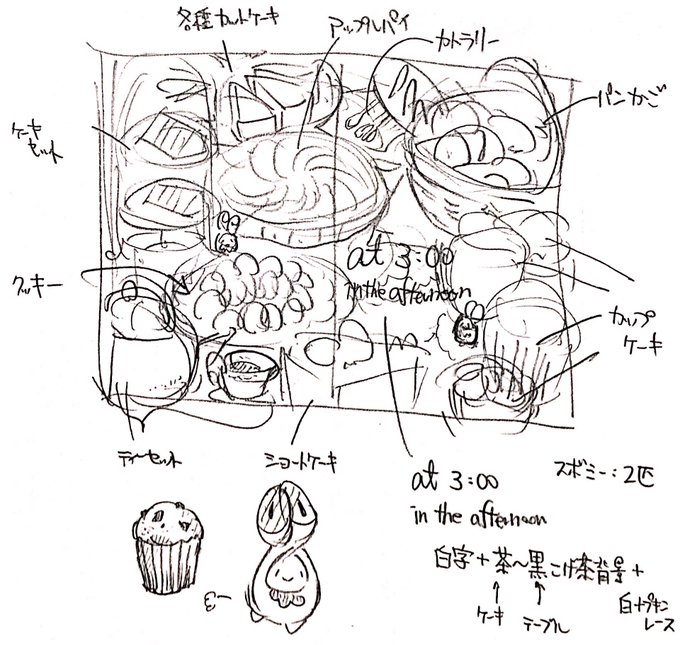 各種カットケーキ
アップルパイ
カトラリー
パンかご
ケーキ
セット
at 3:00
in the afternoon
クッキー
カップ
ケーキ
ティーセット
ショートケーキ
スボミー:2匹
at 3:00
in the afternoon
白字+茶〜黒こげ茶背景+
ケーキ
テーブル
白ナプキン
レース